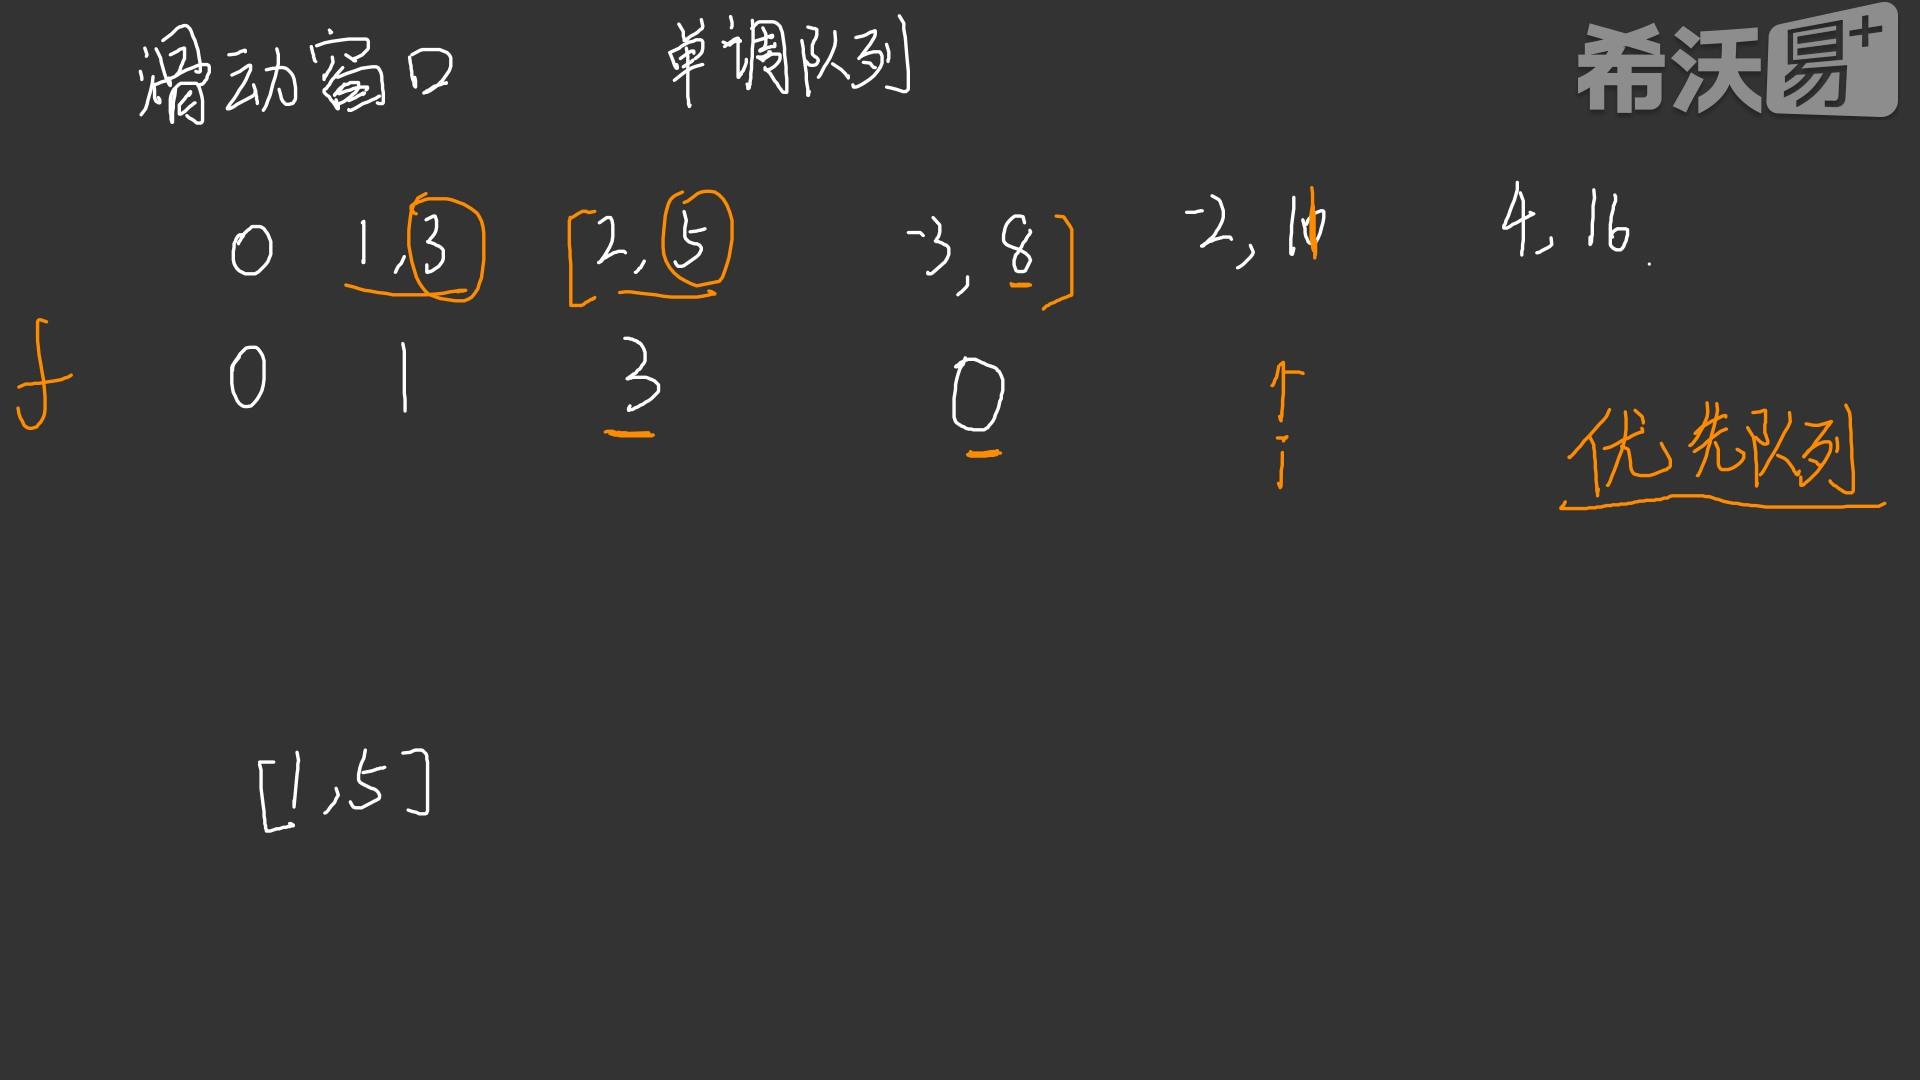 滑动窗口 单调队列
希沃易+
0 1,3 [2,5 -3,8] -2,10 4,16.
f 0 1 3 0 i
优先队列
[1,5]